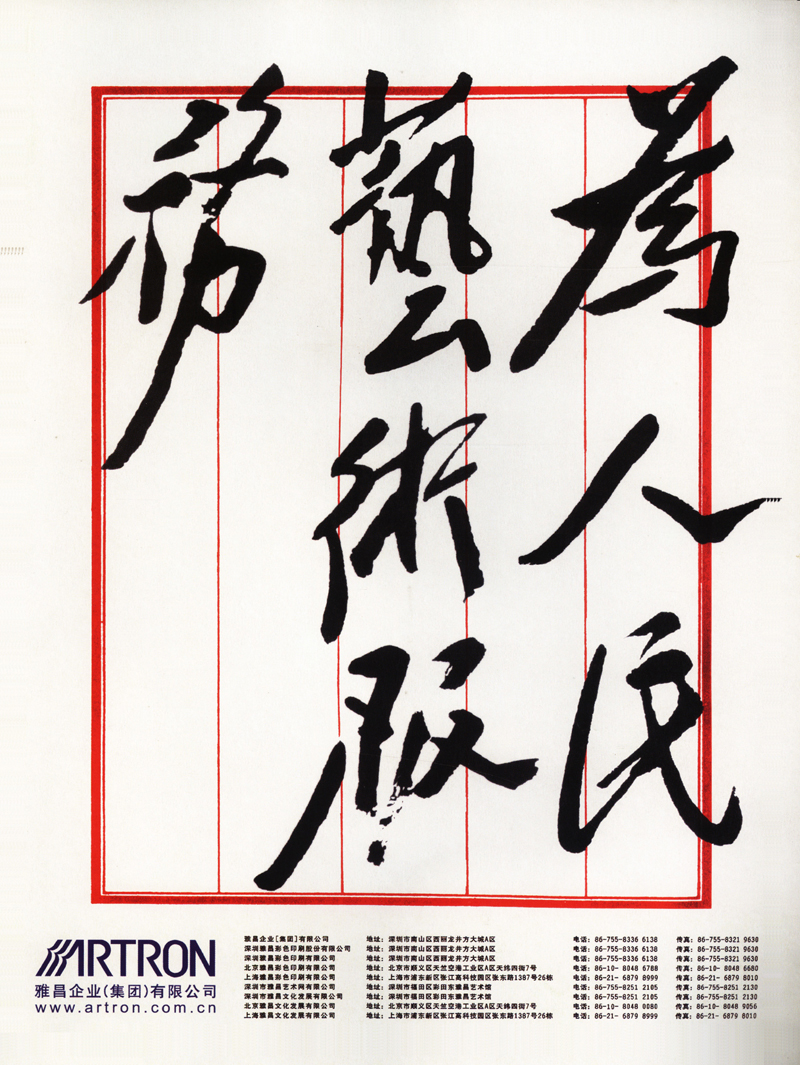 為人民
藝術服
務
ARTRON
雅昌企业(集团)有限公司
www.artron.com.cn
雅昌企业[集团]有限公司 地址: 深圳市南山区西丽龙井方大城A区 电话: 86-755-8336 6138 传真: 86-755-8321 9630
深圳雅昌彩色印刷股份有限公司 地址: 深圳市南山区西丽龙井方大城A区 电话: 86-755-8336 6138 传真: 86-755-8321 9630
深圳雅昌彩色印刷有限公司 地址: 深圳市南山区西丽龙井方大城A区 电话: 86-755-8336 6138 传真: 86-755-8321 9630
北京雅昌彩色印刷有限公司 地址: 北京市顺义区天竺空港工业区A区天纬四街7号 电话: 86-10- 8048 6788 传真: 86-10- 8048 6680
上海雅昌彩色印刷有限公司 地址: 上海市浦东新区张江高科技园区张东路1387号26栋 电话: 86-21- 6879 8999 传真: 86-21- 6879 8010
深圳市雅昌艺术网有限公司 地址: 深圳市福田区彩田东雅昌艺术馆 电话: 86-755-8251 2105 传真: 86-755-8251 2130
深圳市雅昌文化发展有限公司 地址: 深圳市福田区彩田东雅昌艺术馆 电话: 86-755-8251 2105 传真: 86-755-8251 2130
北京雅昌文化发展有限公司 地址: 北京市顺义区天竺空港工业区A区天纬四街7号 电话: 86-10- 8048 0080 传真: 86-10- 8048 9056
上海雅昌文化发展有限公司 地址: 上海市浦东新区张江高科技园区张东路1387号26栋 电话: 86-21- 6879 8999 传真: 86-21- 6879 8010